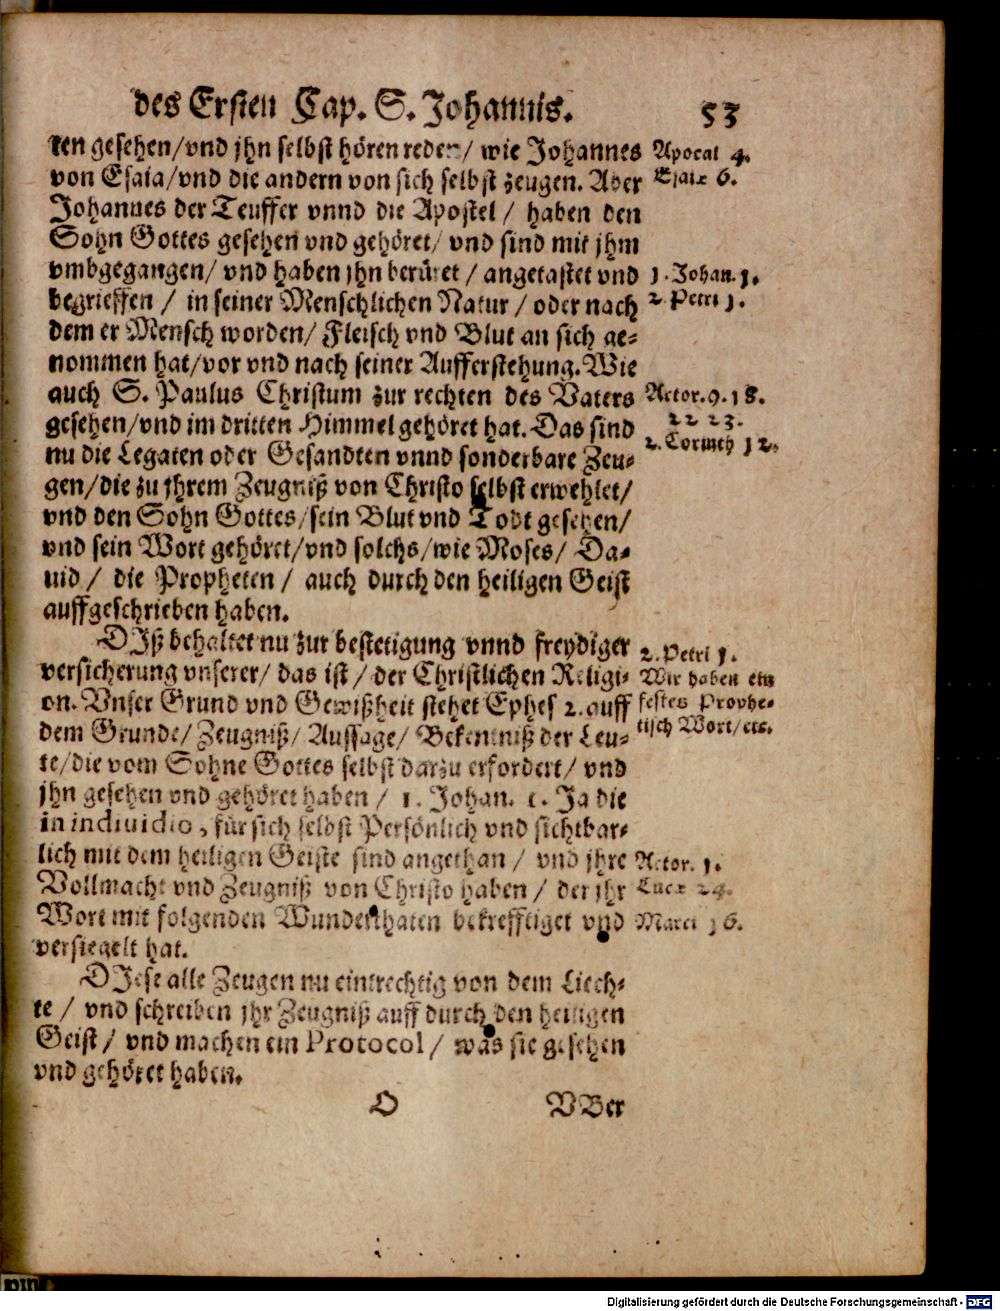 des Ersten Cap. S. Johannis. 53
ten gesehen/vnd jhn selbst hören reden/ wie Johannes
Apocal 4.
von Esaia/vnd die andern von sich selbst zeugen. Aber
Esaiæ 6.
Johannes der Teuffer vnnd die Apostel / haben den
Sohn Gottes gesehen vnd gehöret/ vnd sind mit jhm
vmbgegangen/ vnd haben jhn berüret / angetastet vnd
1. Johan. 1.
begrieffen / in seiner Menschlichen Natur / oder nach
2 Petri 1.
dem er Mensch worden/ Fleisch vnd Blut an sich ge-
nommen hat/vor vnd nach seiner Aufferstehung. Wie
auch S. Paulus Christum zur rechten des Vaters
Actor. 9. 18.
22 23.
gesehen/vnd im dritten Himmel gehöret hat. Das sind
2. Corinth 12.
nu die Legaten oder Gesandten vnnd sonderbare Zeu-
gen/die zu jhrem Zeugniß von Christo selbst erwehlet/
vnd den Sohn Gottes/sein Blut vnd Todt gesehen/
vnd sein Wort gehöret/vnd solchs/wie Moses/ Da-
uid / die Propheten / auch durch den heiligen Geist
auffgeschrieben haben.
DIß behaltet nu zur bestetigung vnnd freydiger
2. Petri 1.
versicherung vnserer/ das ist / der Christlichen Religi-
Wir haben ein
on. Vnser Grund vnd Gewißheit stehet Ephes 2. auff
festes Prophe-
dem Grunde/ Zeugniß/ Aussage/ Bekentniß der Leu-
tisch Wort/ etc.
te/die vom Sohne Gottes selbst darzu erfordert/ vnd
jhn gesehen vnd gehöret haben / 1. Johan. 1. Ja die
in indiuidio, für sich selbst Persönlich vnd sichtbar-
lich mit dem heiligen Geiste sind angethan / vnd jhre
Actor. 1.
Vollmacht vnd Zeugniß von Christo haben / der jhr
Lucæ 24.
Wort mit folgenden Wunderthaten bekrefftiget vnd
Marci 16.
versiegelt hat.
DJese alle Zeugen nu eintrechtig von dem Liech-
te / vnd schreiben jhr Zeugniß auff durch den heiligen
Geist / vnd machen ein Protocol / was sie gesehen
vnd gehöret haben.
O VBer
Digitalisierung gefördert durch die Deutsche Forschungsgemeinschaft - DFG